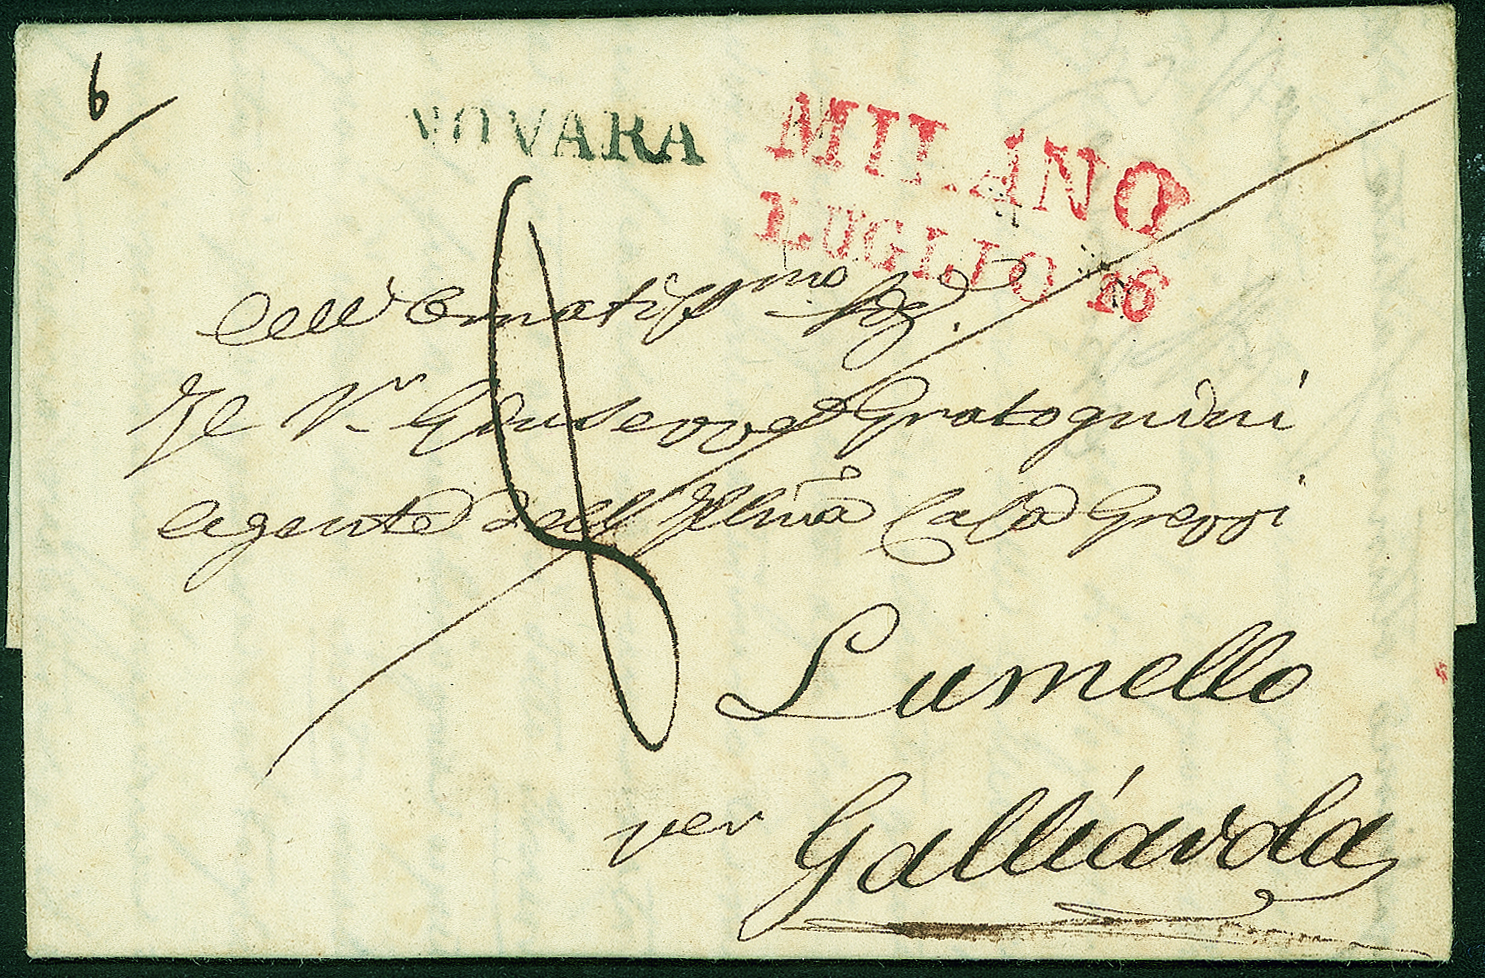 6
NOVARA
MILANO
LUGLIO 26
8
All' Ornatiss.mo Sig.
Il Sr. Giuseppe Gratognini
Agente dell' Illma Casa Greppi
Lumello
per
Galliavola